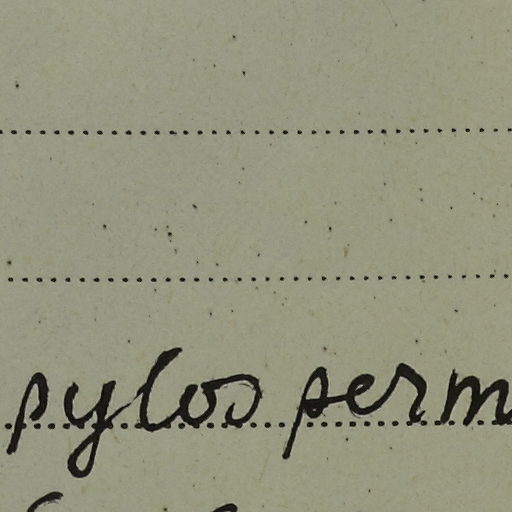 pylos perm